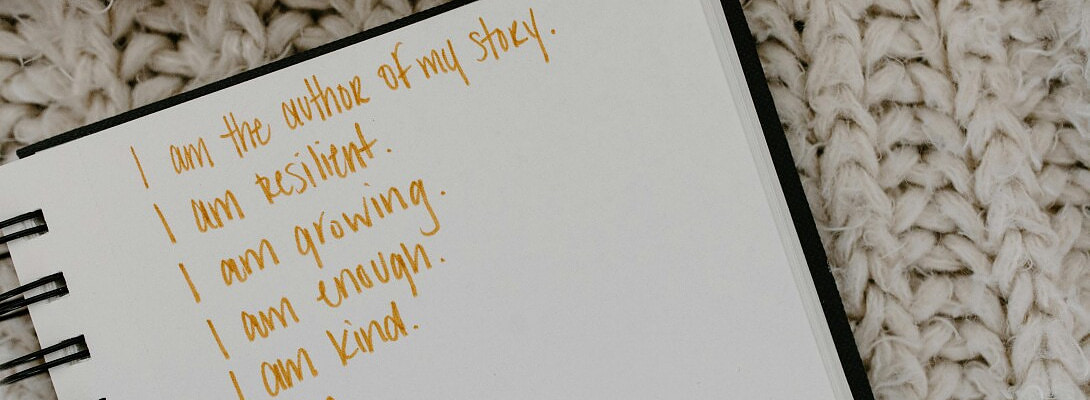 I am the author of my story.
I am resilient.
I am growing.
I am enough.
I am kind.